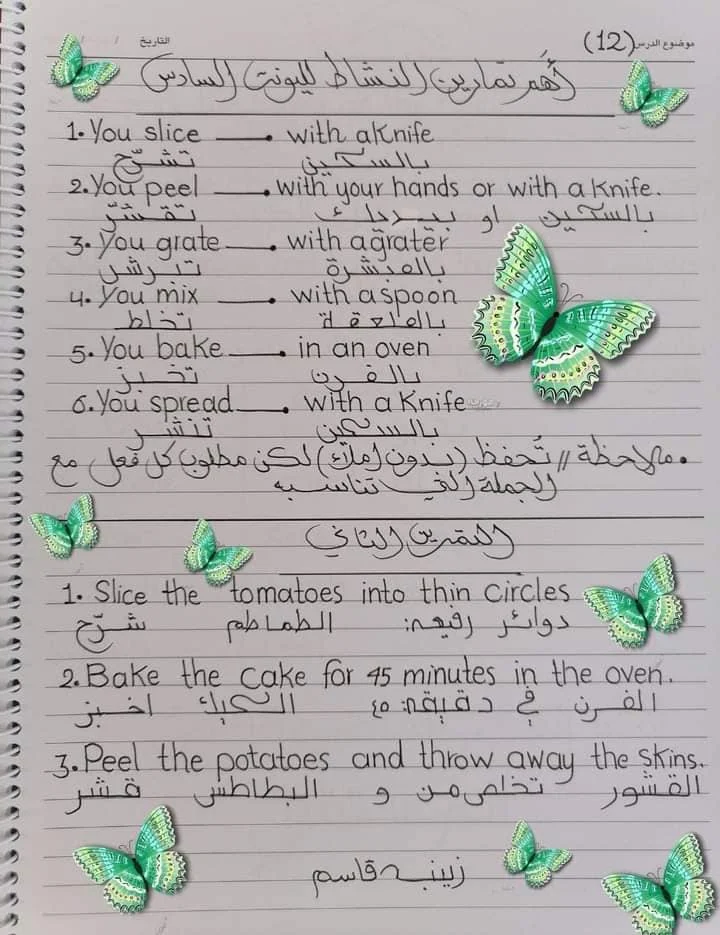 موضوع الدرس (12) التاريخ
أهم تمارين النشاط لليونت السادس
1. You slice ____. with a Knife
تشرّح بالسكين
2. You peel ____. with your hands or with a Knife.
تقشّر بيديك او بالسكين
3. You grate ____. with a grater
تبرش بالمبشرة
4. You mix ____. with a spoon
تخلط بالملعقة
5. You bake ____. in an oven
تخبز بالفرن
6. You spread ____. with a Knife
تنشر بالسكين
• ملاحظة // تُحفظ (بدون إملاء) لكن مطلوب كل فعل مع
الجملة التي تناسبه
التمرين الثاني
1. Slice the tomatoes into thin circles
شرّح الطماطم دوائر رفيعه:
2. Bake the cake for 45 minutes in the oven.
اخبز الكيك ٤٥ دقيقه: في الفرن
3. Peel the potatoes and throw away the skins.
قشر البطاطس و تخلص من القشور
زينب قاسم